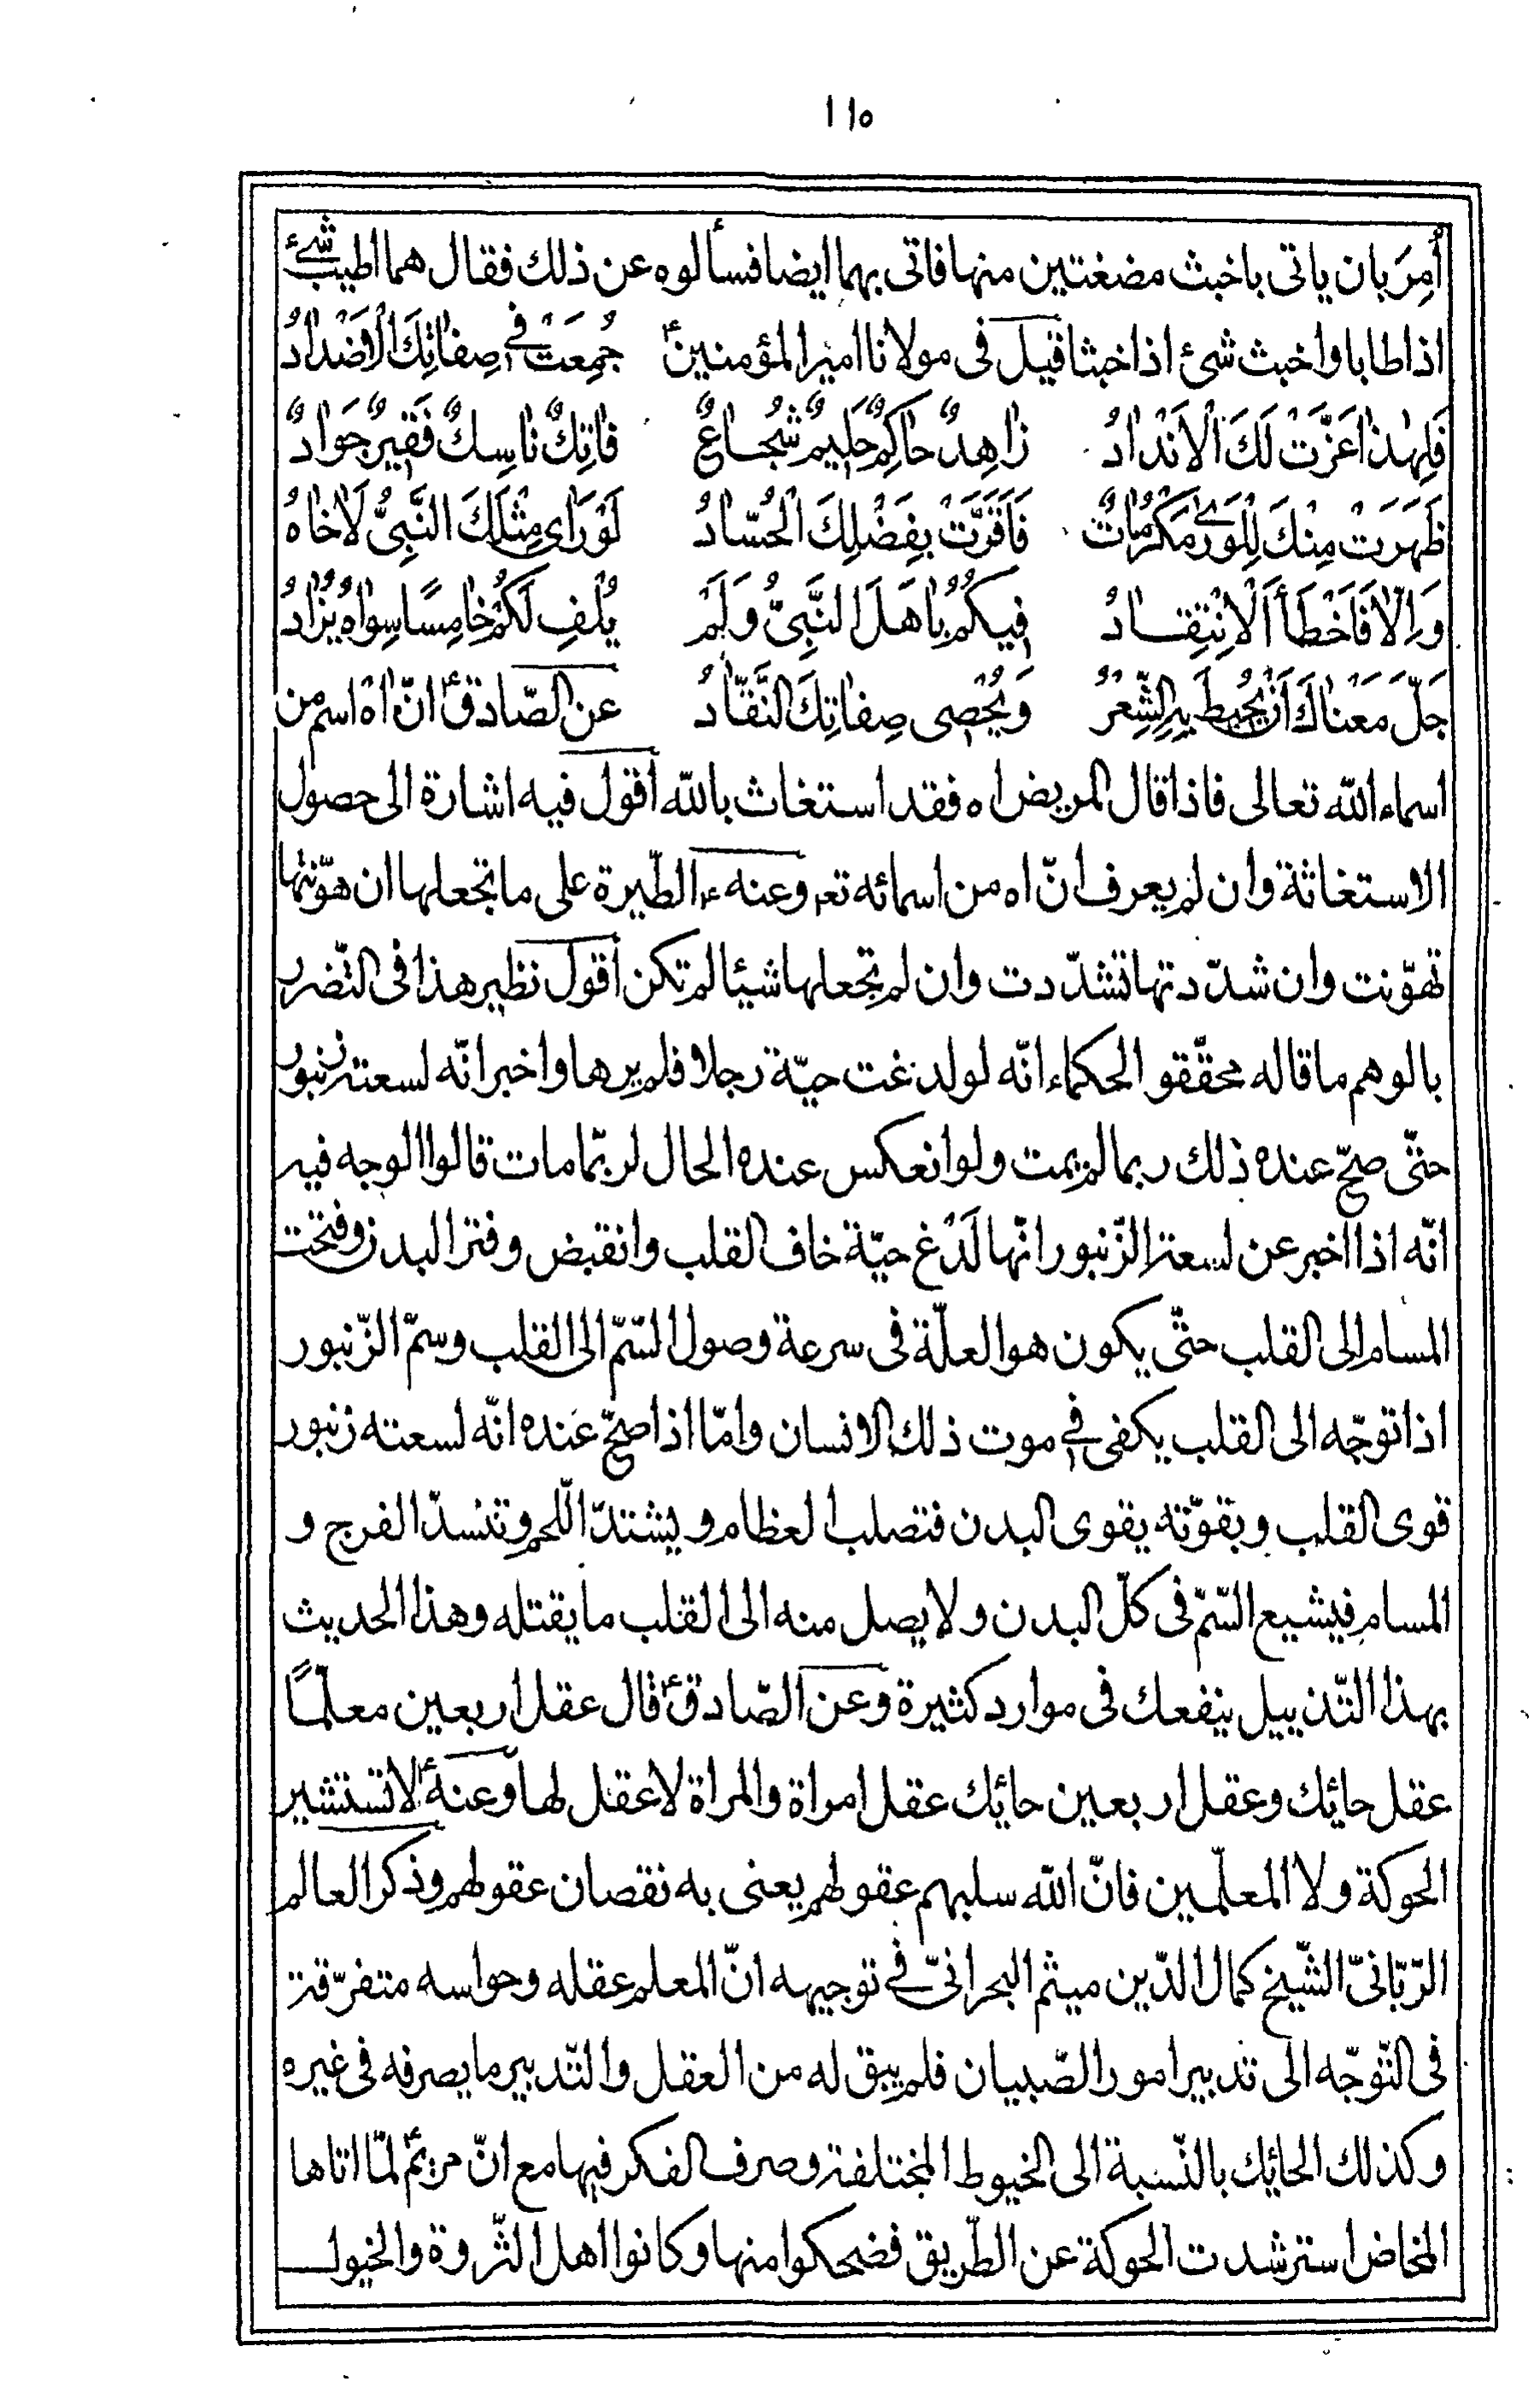 ١١٥
أُمِرَ بان ياتى باخبث مضغتين منها فاتى بهما ايضا فسألوه عن ذلك فقال هما اطيب شئ
اذا طابا واخبث شئ اذا خبثا قيل فى مولانا امير المؤمنينؑ جُمِعَتْ فى صِفاتِكَ الْاَضْدادُ
فَلِهٰذا عَزَّتْ لَكَ الْاَنْدادُ زاهِدٌ حاكِمٌ حَليمٌ شُجاعٌ فاتِكٌ ناسِكٌ فَقيرٌ جَوادٌ
ظَهَرَتْ مِنْكَ لِلْوَرىٰ مَكْرُماتٌ فَاَقَرَّتْ بِفَضْلِكَ الْحُسّادُ لَوْ رَاى مِثْلَكَ النَّبِىُّ لَاٰخاهُ
وَاِلّا فَاَخْطَأَ الْاِنْتِقادُ فيكُمُ باهَلَ النَّبِىُّ وَلَمْ يُلْفِ لَكُمْ خامِسًا سِواهُ يُزادُ
جَلَّ مَعْناكَ اَنْ يُحيطَ بِهِ الشِّعْرُ وَيُحْصى صِفاتِكَ النَّقّادُ عن الصّادقؑ انّ اهْ اسم من
اسماء الله تعالى فاذا قال المريض اه فقد استغاث بالله أقول فيه اشارة الى حصول
الاستغاثة وان لم يعرف انّ اه من اسمائه تعم وعنه ع الطّيرة على ما تجعلها ان هوّنتها
تهوّنت وان شدّدتها تشدّدت وان لم تجعلها شيئا لم تكن أقول نظير هذا فى التّضرر
بالوهم ما قاله محقّقو الحكماء انّه لو لدغت حيّة رجلا فلم يرها واخبر انّه لسعته زنبور
حتّى صحّ عنده ذلك ربما لم يمت ولو انعكس عنده الحال لربّما مات قالوا الوجه فيه
انّه اذا اخبر عن لسعة الزّنبور انّها لَدْغ حيّة خاف القلب وانقبض وفتر البدن وفتحت
المسام الى القلب حتّى يكون هو العلّة فى سرعة وصول السّمّ الى القلب وسمّ الزّنبور
اذا توجّه الى القلب يكفى فى موت ذلك الانسان وامّا اذا صحّ عنده انّه لسعته زنبور
قوى القلب وبقوّته يقوى البدن فتصلب العظام ويشتدّ اللّحم وتنسدّ الفرج و
المسام فيشيع السّمّ فى كلّ البدن ولا يصل منه الى القلب ما يقتله وهذا الحديث
بهذا التّذييل ينفعك فى موارد كثيرة وعن الصّادقؑ قال عقل اربعين معلّمًا
عقل حائك وعقل اربعين حائك عقل امراة والمراة لا عقل لها وعنهؑ لا تستشير
الحوكة ولا المعلّمين فانّ الله سلبهم عقولهم يعنى به نقصان عقولهم وذكر العالم
الرّبّانىّ الشّيخ كمال الدّين ميثم البحرانىّ فى توجيهه انّ المعلم عقله وحواسه متفرّقة
فى التّوجّه الى تدبير امور الصّبيان فلم يبق له من العقل والتّدبير ما يصرفه فى غيره
وكذلك الحائك بالنّسبة الى الخيوط المختلفة وصرف الفكر فيها مع انّ مريمؑ لمّا اتاها
المخاض استرشدت الحوكة عن الطّريق فضحكوا منها وكانوا اهل الثّروة والخيول